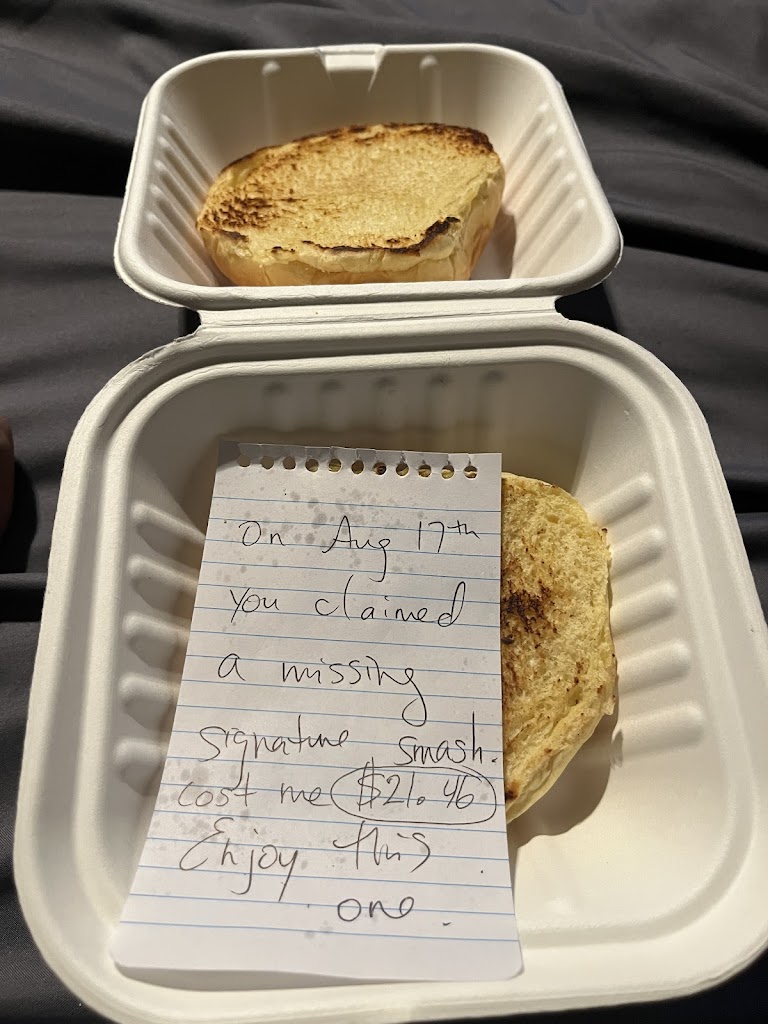 On Aug 17th
you claimed
a missing
signature smash.
cost me $21.46
Enjoy this
one.